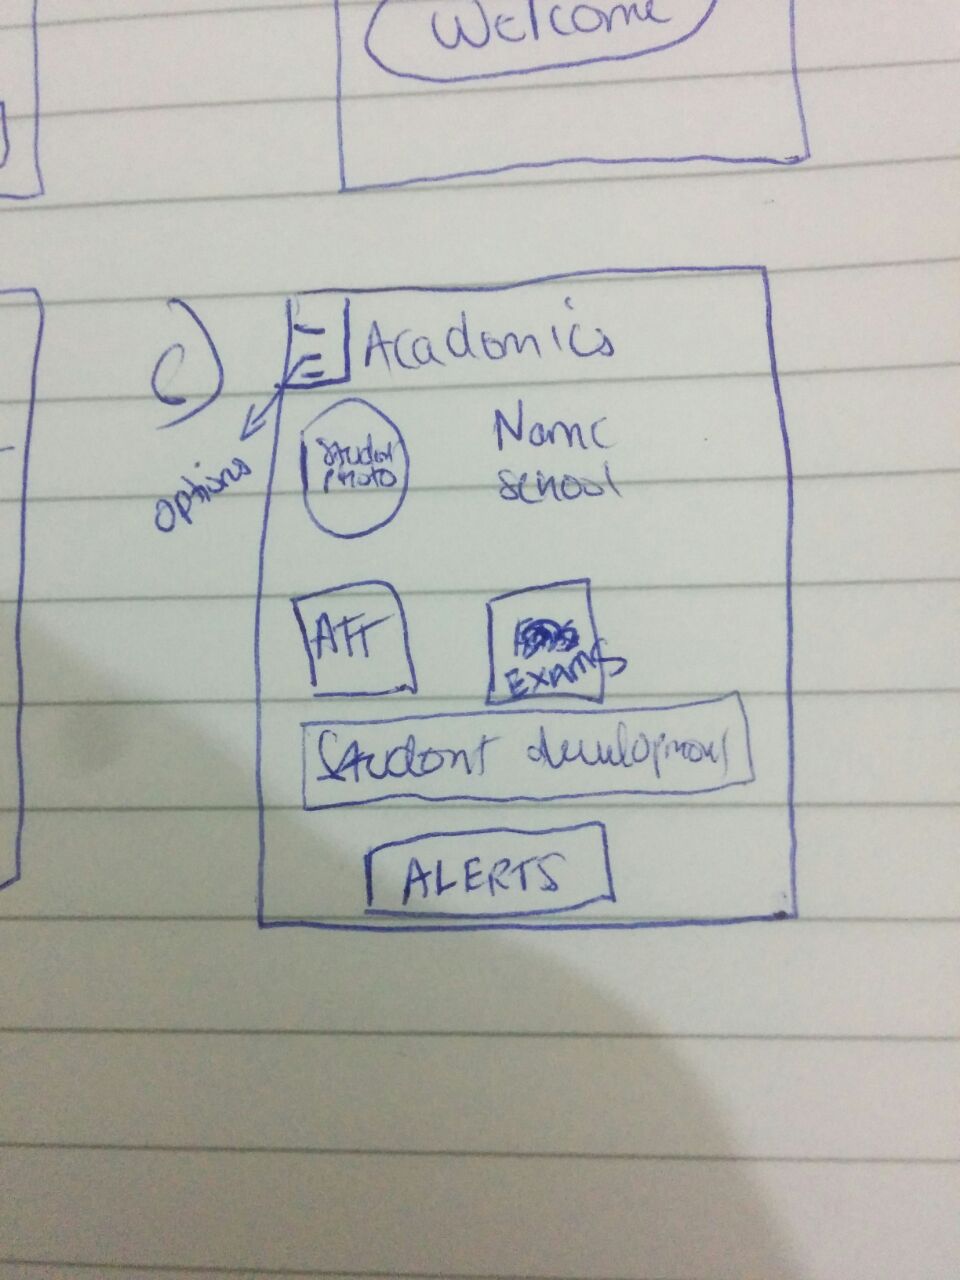 Welcome
c)
Academics
options
Student
photo
Name
school
ATT
EXAMS
Student development
ALERTS